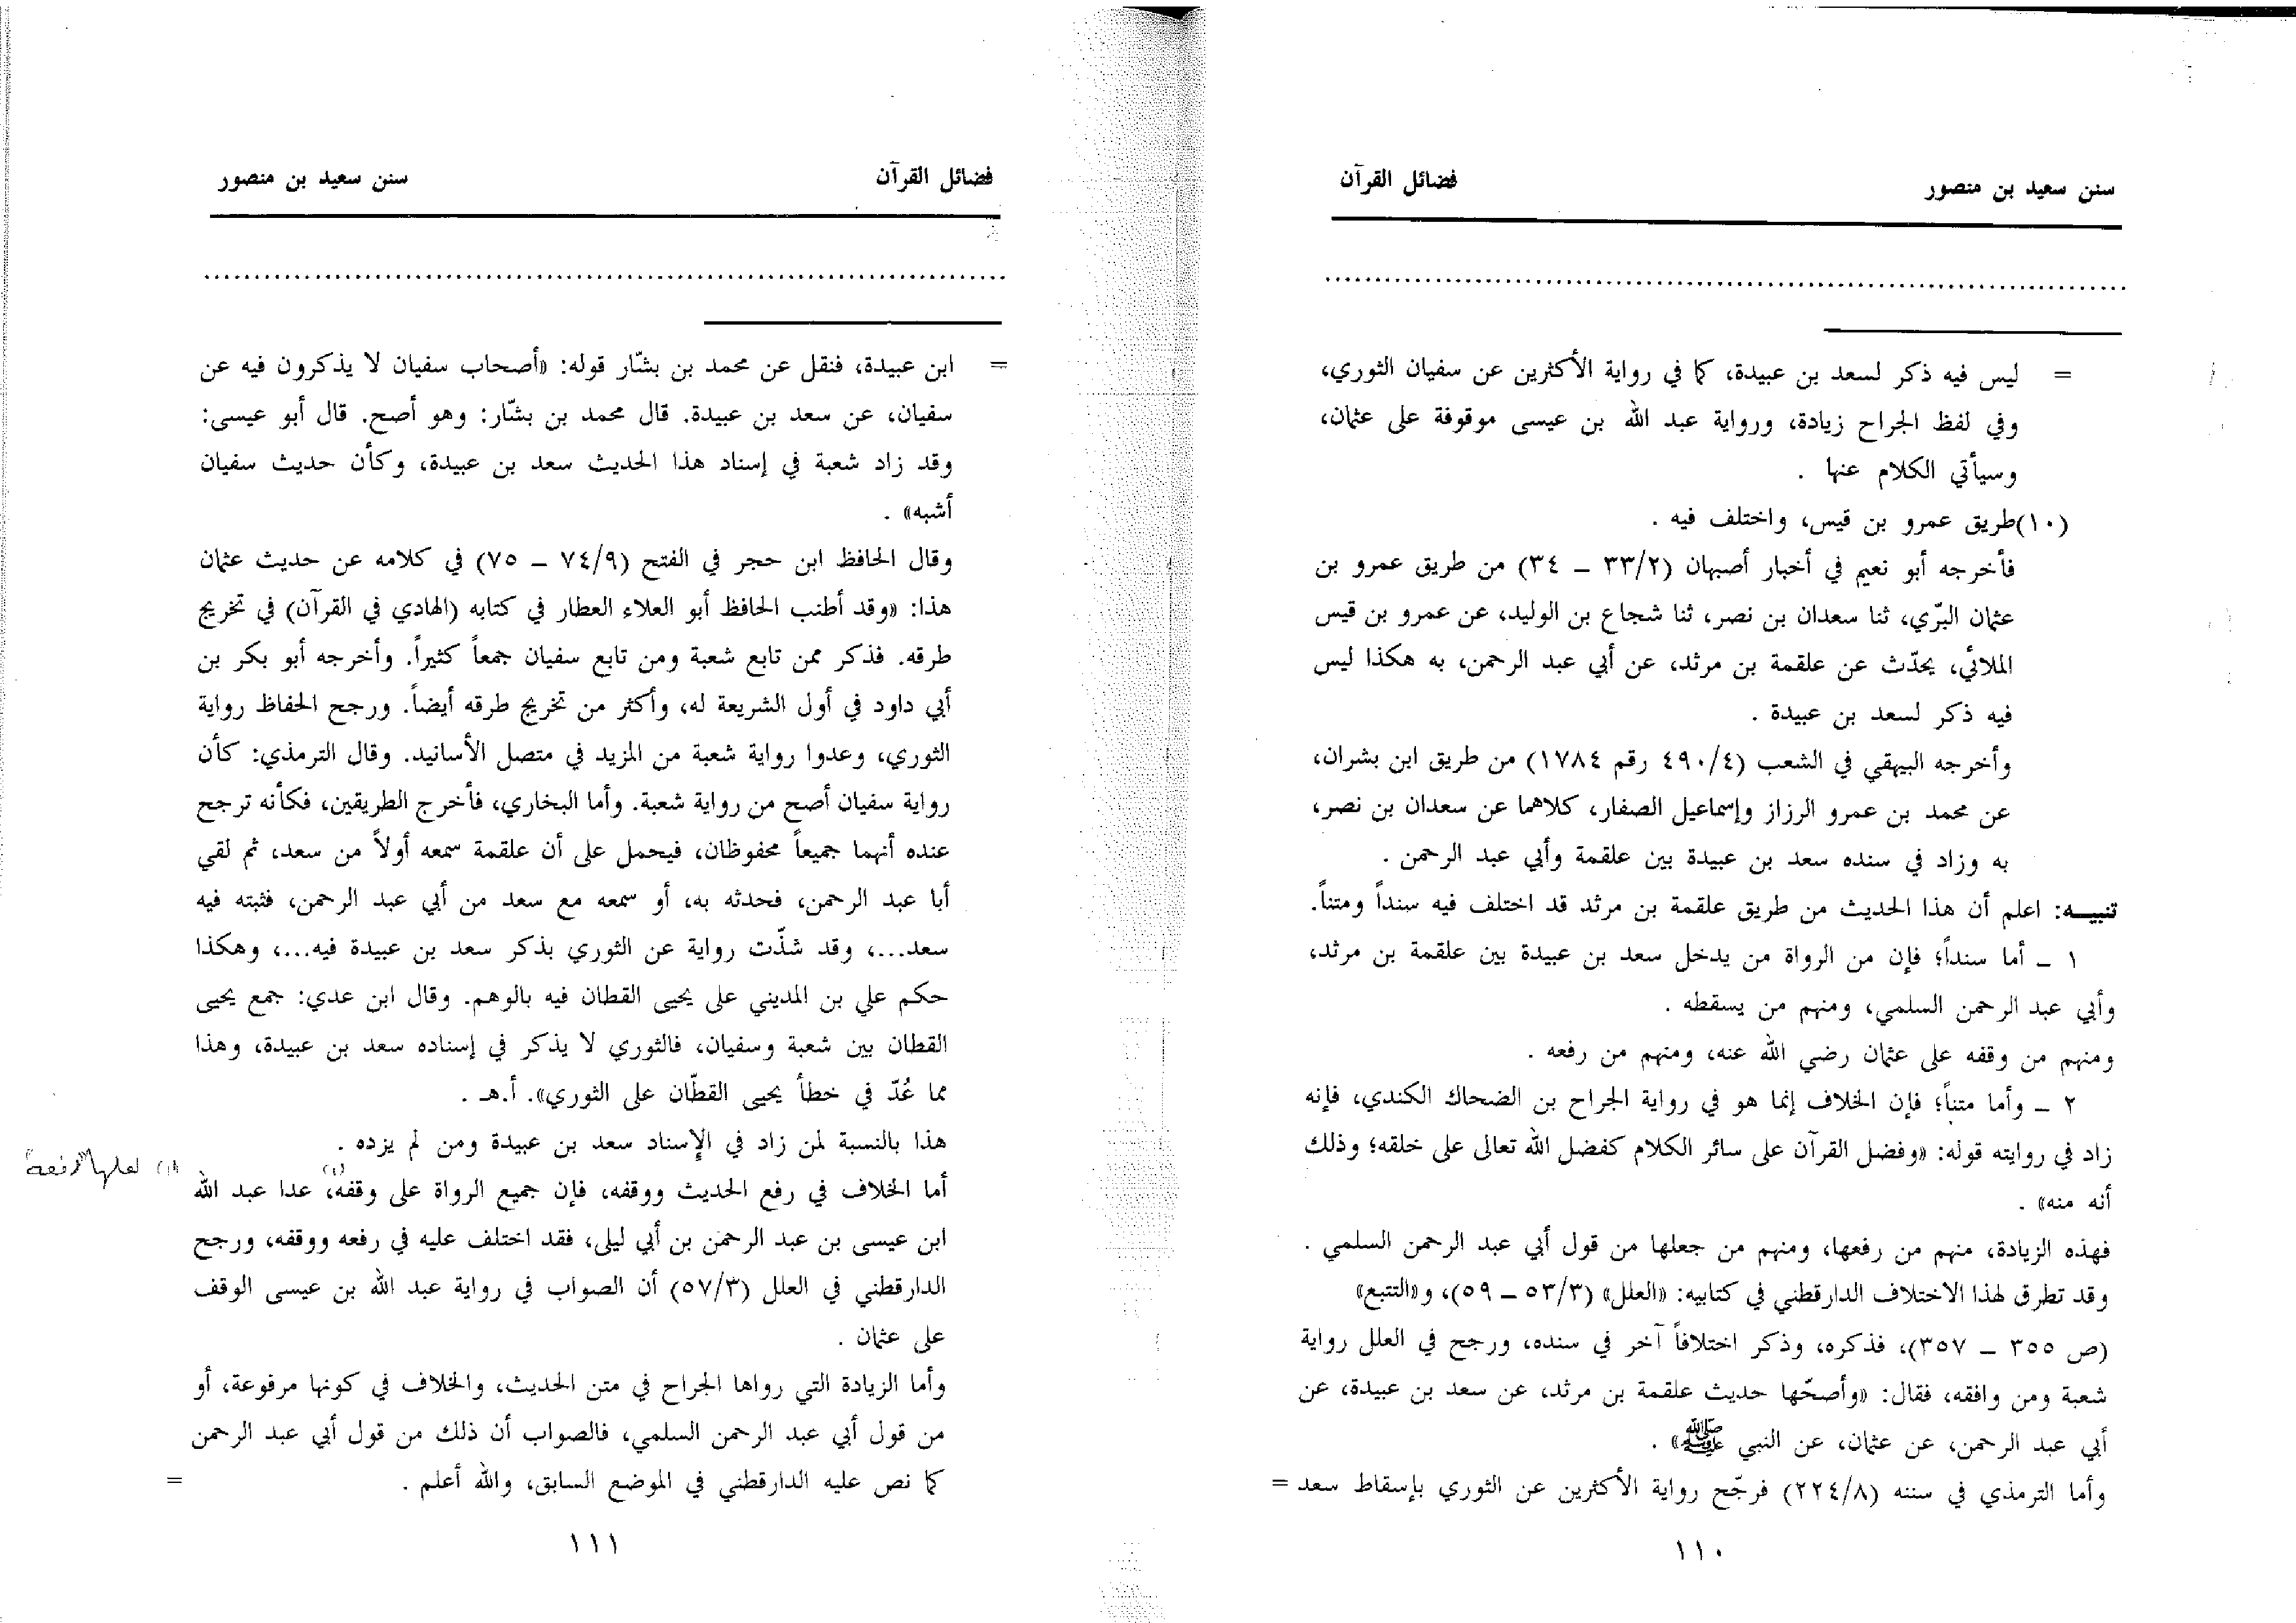 سنن سعيد بن منصور
فضائل القرآن
= ليس فيه ذكر لسعد بن عبيدة، كما في رواية الأكثرين عن سفيان الثوري،
وفي لفظ الجراح زيادة، ورواية عبد الله بن عيسى موقوفة على عثمان،
وسيأتي الكلام عنها .
(١٠)طريق عمرو بن قيس، واختلف فيه .
فأخرجه أبو نعيم في أخبار أصبهان (٣٣/٢ ــ ٣٤) من طريق عمرو بن
عثمان البرّي، ثنا سعدان بن نصر، ثنا شجاع بن الوليد، عن عمرو بن قيس
الملائي، يحدّث عن علقمة بن مرثد، عن أبي عبد الرحمن، به هكذا ليس
فيه ذكر لسعد بن عبيدة .
وأخرجه البيهقي في الشعب (٤٩٠/٤ رقم ١٧٨٤) من طريق ابن بشران،
عن محمد بن عمرو الرزاز وإسماعيل الصفار، كلاهما عن سعدان بن نصر،
به وزاد في سنده سعد بن عبيدة بين علقمة وأبي عبد الرحمن .
تنبيــه: اعلم أن هذا الحديث من طريق علقمة بن مرثد قد اختلف فيه سنداً ومتناً.
١ ــ أما سنداً؛ فإن من الرواة من يدخل سعد بن عبيدة بين علقمة بن مرثد،
وأبي عبد الرحمن السلمي، ومنهم من يسقطه .
ومنهم من وقفه على عثمان رضي الله عنه، ومنهم من رفعه .
٢ ــ وأما متناً؛ فإن الخلاف إنما هو في رواية الجراح بن الضحاك الكندي، فإنه
زاد في روايته قوله: «وفضل القرآن على سائر الكلام كفضل الله تعالى على خلقه؛ وذلك
أنه منه» .
فهذه الزيادة، منهم من رفعها، ومنهم من جعلها من قول أبي عبد الرحمن السلمي .
وقد تطرق لهذا الاختلاف الدارقطني في كتابيه: «العلل» (٥٣/٣ ــ ٥٩)، و«التتبع»
(ص ٣٥٥ ــ ٣٥٧)، فذكره، وذكر اختلافاً آخر في سنده، ورجح في العلل رواية
شعبة ومن وافقه، فقال: «وأصحّها حديث علقمة بن مرثد، عن سعد بن عبيدة، عن
أبي عبد الرحمن، عن عثمان، عن النبي ﷺ» .
وأما الترمذي في سننه (٢٢٤/٨) فرجّح رواية الأكثرين عن الثوري بإسقاط سعد =
١١٠
فضائل القرآن
سنن سعيد بن منصور
= ابن عبيدة، فنقل عن محمد بن بشّار قوله: «أصحاب سفيان لا يذكرون فيه عن
سفيان، عن سعد بن عبيدة. قال محمد بن بشّار: وهو أصح. قال أبو عيسى:
وقد زاد شعبة في إسناد هذا الحديث سعد بن عبيدة، وكأن حديث سفيان
أشبه» .
وقال الحافظ ابن حجر في الفتح (٧٤/٩ ــ ٧٥) في كلامه عن حديث عثمان
هذا: «وقد أطنب الحافظ أبو العلاء العطار في كتابه (الهادي في القرآن) في تخريج
طرقه. فذكر ممن تابع شعبة ومن تابع سفيان جمعاً كثيراً. وأخرجه أبو بكر بن
أبي داود في أول الشريعة له، وأكثر من تخريج طرقه أيضاً. ورجح الحفاظ رواية
الثوري، وعدوا رواية شعبة من المزيد في متصل الأسانيد. وقال الترمذي: كأن
رواية سفيان أصح من رواية شعبة. وأما البخاري، فأخرج الطريقين، فكأنه ترجح
عنده أنهما جميعاً محفوظان، فيحمل على أن علقمة سمعه أولاً من سعد، ثم لقي
أبا عبد الرحمن، فحدثه به، أو سمعه مع سعد من أبي عبد الرحمن، فثبته فيه
سعد...، وقد شذّت رواية عن الثوري بذكر سعد بن عبيدة فيه...، وهكذا
حكم علي بن المديني على يحيى القطان فيه بالوهم. وقال ابن عدي: جمع يحيى
القطان بين شعبة وسفيان، فالثوري لا يذكر في إسناده سعد بن عبيدة، وهذا
مما عُدّ في خطأ يحيى القطّان على الثوري». أ.هـ .
هذا بالنسبة لمن زاد في الإسناد سعد بن عبيدة ومن لم يزده .
أما الخلاف في رفع الحديث ووقفه، فإن جميع الرواة على وقفه(١)، عدا عبد الله
(١) لعلها "رفعه"
ابن عيسى بن عبد الرحمن بن أبي ليلى، فقد اختلف عليه في رفعه ووقفه، ورجح
الدارقطني في العلل (٥٧/٣) أن الصواب في رواية عبد الله بن عيسى الوقف
على عثمان .
وأما الزيادة التي رواها الجراح في متن الحديث، والخلاف في كونها مرفوعة، أو
من قول أبي عبد الرحمن السلمي، فالصواب أن ذلك من قول أبي عبد الرحمن
كما نص عليه الدارقطني في الموضع السابق، والله أعلم . =
١١١